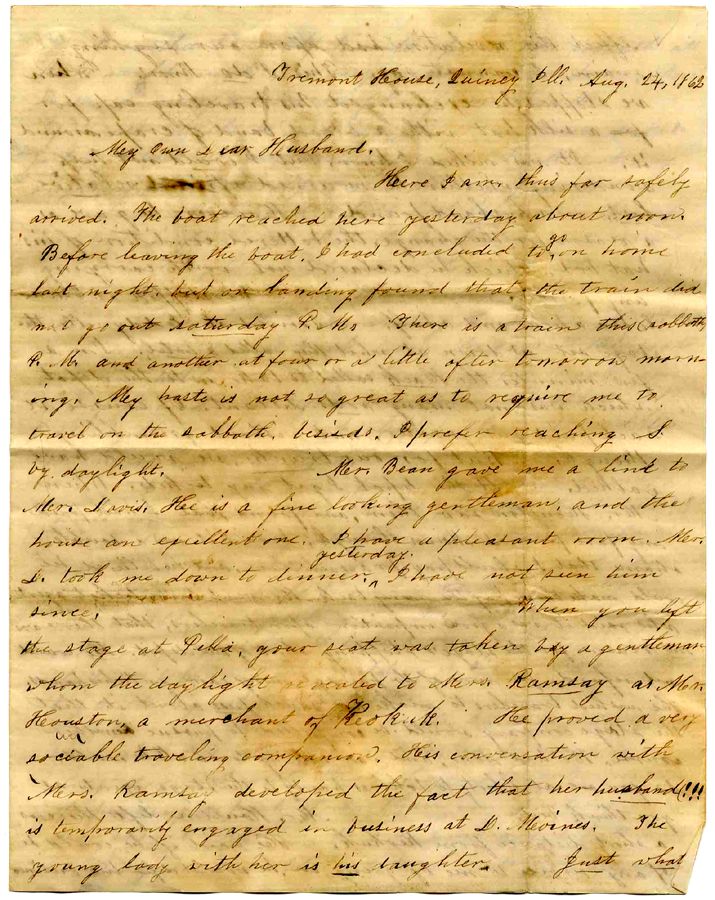 Tremont House, Quincy Ill. Aug. 24, 1862
My Own Dear Husband.
Here I am, thus far safely
arrived. The boat reached here yesterday about noon.
Before leaving the boat, I had concluded to go on home
last night, but on landing found that the train did
not go out saturday P. M. There is a train this (sabbath)
P. M. and another at four or a little after tomorrow morn-
ing. My haste is not so great as to require me to
travel on the sabbath, besides, I prefer reaching S.
by daylight. Mr. Bean gave me a line to
Mr. Davis. He is a fine looking gentleman, and the
house an excellent one. I have a pleasant room. Mr.
D. took me down to dinner yesterday. I have not seen him
since. When you left
the stage at Pella, your seat was taken by a gentleman
whom the daylight revealed to Mrs. Ramsay as Mr.
Houston, a merchant of Keokuk. He proved a very
sociable traveling companion. His conversation with
Mrs. Ramsay developed the fact that her husband!!!
is temporarily engaged in business at D. Moines. The
young lady with her is his daughter. Just what